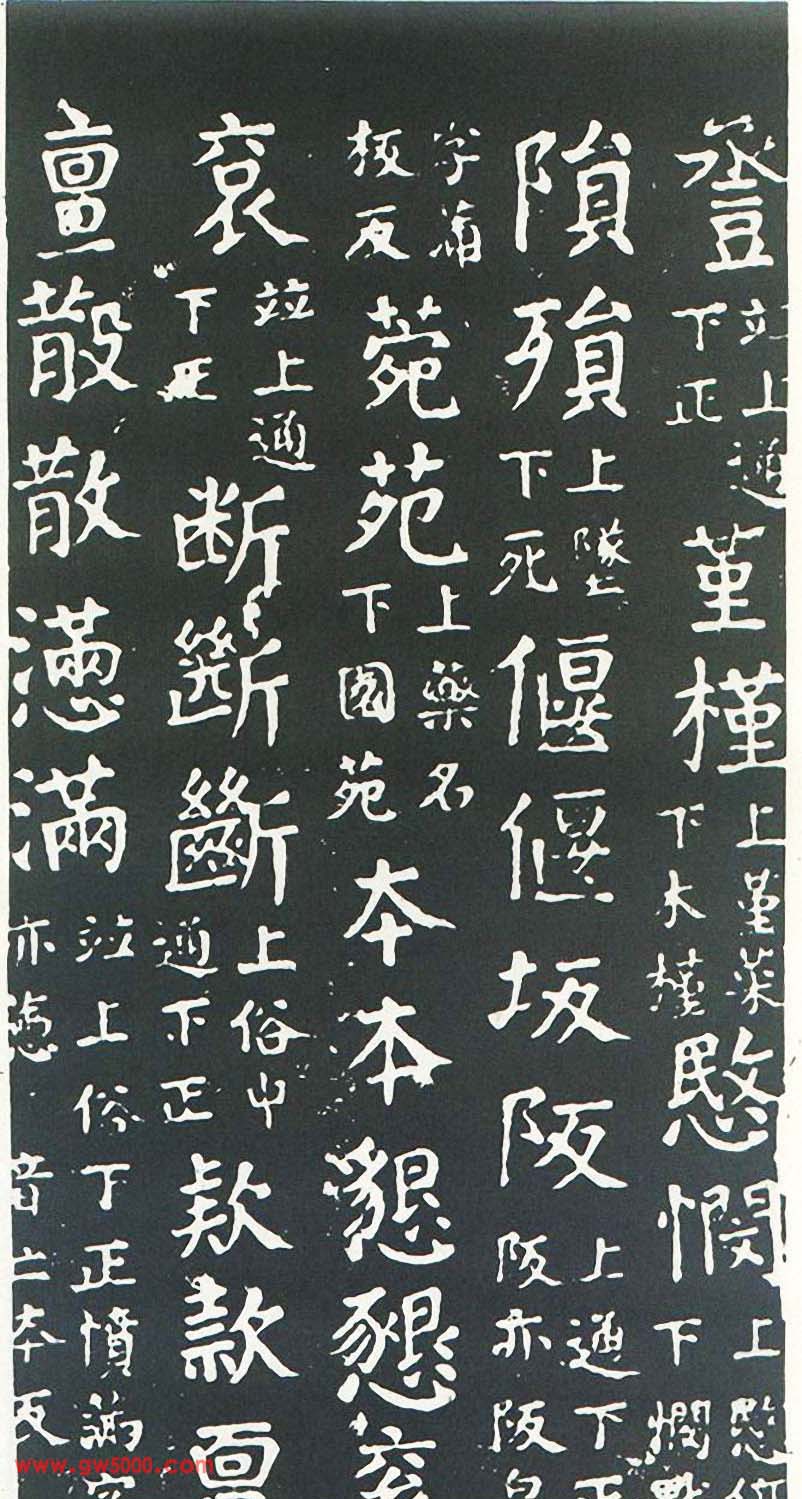 並上通下正堇槿上堇菜下木槿愍憫上愍下憫
隕殞上墜下死偃偃坂阪上通下正阪亦阪
字蒲板反菀苑上藥名下園苑夲本懇懇
衮並上通下正断斷上俗中通下正欵款
亶散散懣滿並上俗下正憤滿亦懣音上本反
www.gw5000.com